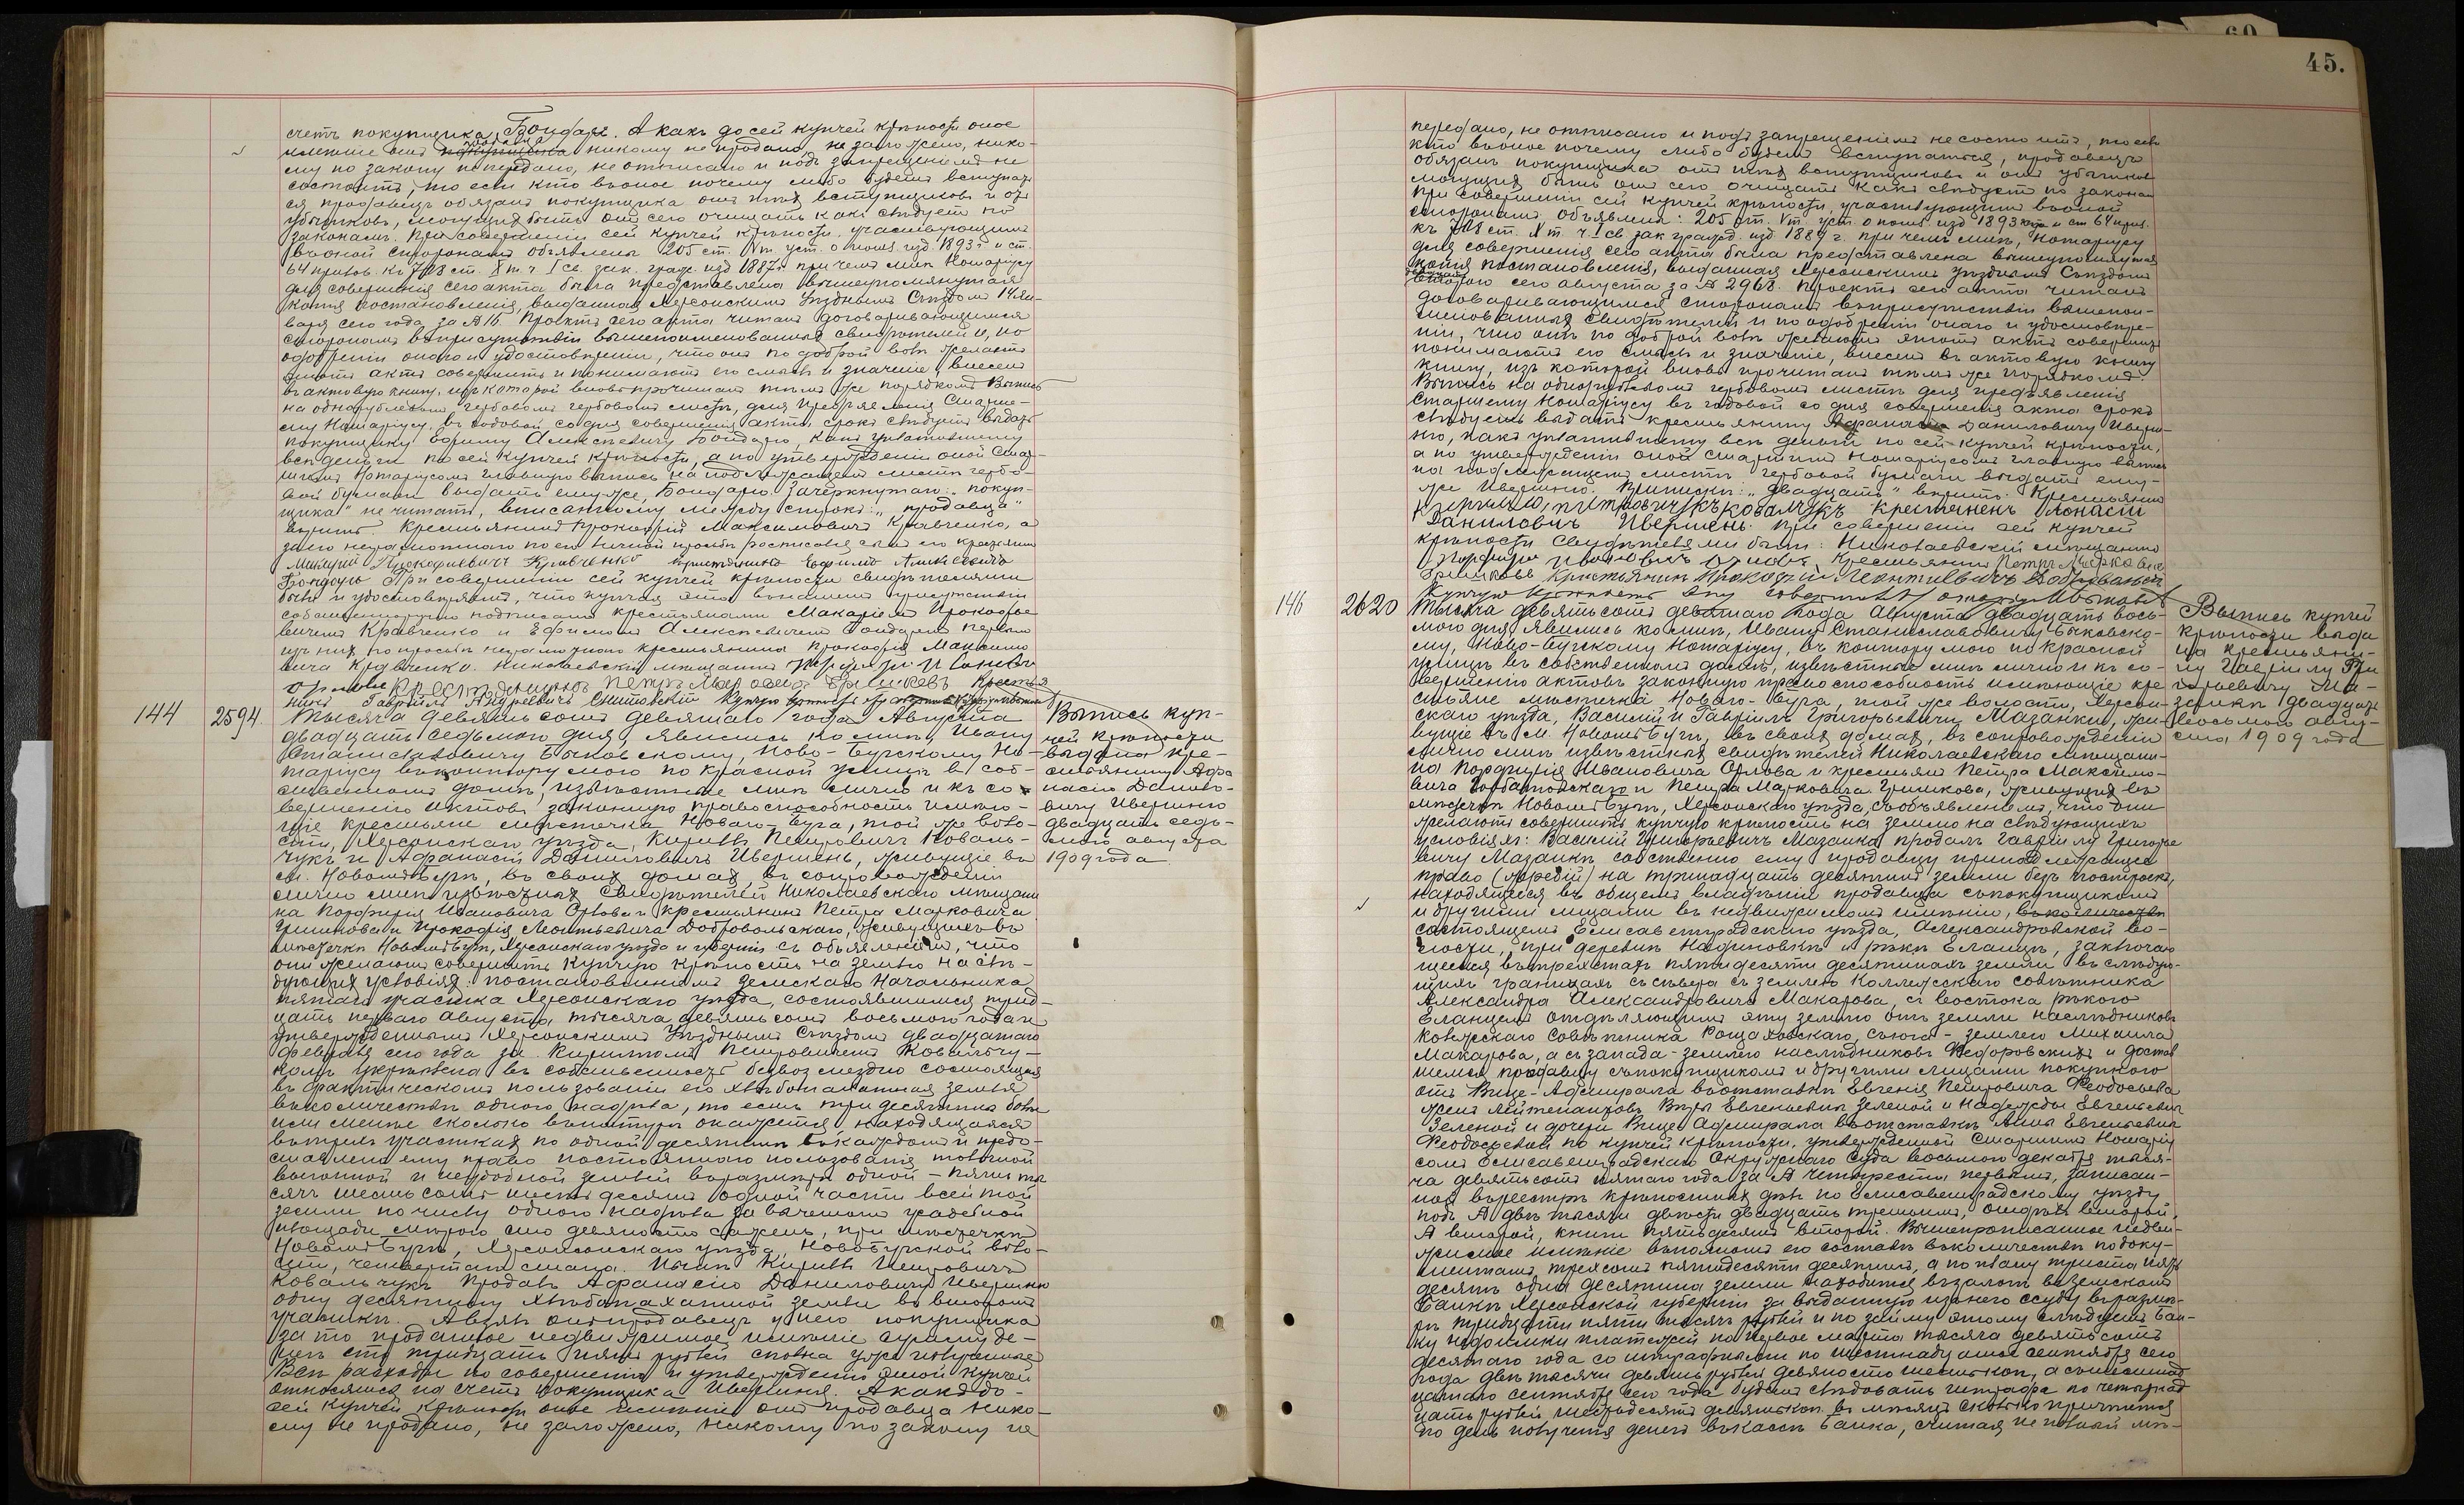 45.
счетъ покупщика Бондаря. А какъ до сей купчей крѣпости оное
имѣніе отъ покупщика продавца никому не продано, не заложено, нико-
му по закону не передано, не отписано и подъ запрещеніемъ не
состоитъ, то если кто въ оное почему либо будетъ вступать-
ся продавецъ обязанъ покупщика отъ тѣхъ вступщиковъ и отъ
убытковъ, могущихъ быть отъ сего очищать какъ слѣдуетъ по
законамъ. При совершеніи сей купчей крѣпости, участвующимъ
въ оной сторонамъ объявлены 205 ст. V т. уст. о пошл. изд. 1893 г. и ст.
64 прилож. къ 708 ст. X т. ч. I св. зак. гражд. изд. 1887 г. при чемъ мнѣ Нотаріусу
для совершенія сего акта была представлена вышеупомянутая
копія постановленія, выданная Херсонскимъ Уѣзднымъ Съѣздомъ 14 ян-
варя сего года за № 16. Проектъ сего акта читанъ договаривающимся
сторонамъ въ присутствіи вышепоименованныхъ свидѣтелей и, по
одобреніи онаго и удостовѣреніи, что они по доброй волѣ желаютъ
этотъ актъ совершить и понимаютъ его смыслъ и значеніе, внесенъ
въ актовую книгу, изъ которой вновь прочитанъ тѣмъ же порядкомъ. Выпись
на однорублевомъ гербовомъ гербовомъ листѣ, для предъявленія Старше-
му Нотаріусу, въ годовой со дня совершенія акта срокъ слѣдуетъ выдать
покупщику Ефиму Алексѣевичу Бондарю, какъ уплатившему
всѣ деньги по сей купчей крѣпости, а по утвержденіи оной Стар-
шимъ Нотаріусомъ главную выпись на подлежащемъ листѣ гербо-
вой бумаги выдать ему же, Бондарю. Зачеркнутаго: „покуп-
щика" не читать, вписанному между строкъ: „продавца"
вѣрить. Крестьянинъ Прокофій Максимовичъ Кравченко, а
за него неграмотнаго по его личной просьбѣ росписался сынъ его крестьянинъ
Макарій Прокофіевичъ Кравченко крестьянинъ Ефимъ Алексѣевичъ
Бондарь При совершеніи сей купчей крѣпости свидѣтелями
были и удостовѣряемъ, что купчая эта въ нашемъ присутствіи
собственноручно подписана крестьянами Макаріемъ Прокофье-
вичемъ Кравченко и Ефимомъ Алексѣевичемъ Бондаремъ первымъ
изъ нихъ, по просьбѣ неграмотнаго крестьянина Прокофія Максимо-
вича Кравченко. Николаевскій мѣщанинъ Порфирій Ивановъ
Орловъ Крестьянинъ Петръ Марковъ Гришковъ Крестья-
нинъ Гавріилъ Андреевичъ
144 2594. Тысяча девятьсотъ девятаго года Августа
двадцать седьмого дня явились ко мнѣ, Ивану
Станиславовичу Быковскому, Ново-Бугскому Но-
таріусу въ контору мою по красной улицѣ въ соб-
ственномъ домѣ, извѣстные мнѣ лично и къ со-
вершенію актовъ законную правоспособность имѣю-
щіе крестьяне мѣстечка Новаго-Буга, той же воло-
сти, Херсонскаго уѣзда, Кириллъ Петровичъ Коваль-
чукъ и Афанасій Даниловичъ Ивершень, живущіе въ
м. Новомъ-Бугѣ, въ своихъ домахъ, въ сопровожденіи
лично мнѣ извѣстныхъ свидѣтелей Николаевскаго мѣщани-
на Порфирія Ивановича Орлова и крестьянъ Петра Марковича
Гришкова и Прокофія Леонтьевича Добровольскаго, живущихъ въ
мѣстечкѣ Новомъ-Бугѣ, Херсонскаго уѣзда и губерніи съ объявленіемъ, что
они желаютъ совершить купчую крѣпость на землю на слѣ-
дующихъ условіяхъ: постановленіемъ Земскаго Начальника
пятаго участка Херсонскаго уѣзда, состоявшимся трид-
цать перваго августа, тысяча девятьсотъ восьмого года и
утвержденнымъ Херсонскимъ Уѣзднымъ Съѣздомъ двадцатаго
февраля сего года за Кирилломъ Петровичемъ Ковальчу-
комъ укрѣплена въ собственность безвозмездно состоящая
въ фактическомъ пользованіи его хлѣбопахатная земля
въ количествѣ одного надѣла, то есть три десятины болѣе
или менѣе сколько въ натурѣ окажется находящаяся
въ трехъ участкахъ по одной десятинѣ въ каждомъ и предо-
ставлено ему право постояннаго пользованія толочной
выгонной и неудобной землей въ размѣрѣ одной-пяти ты-
сячъ шестьсотъ шестьдесятъ одной части всей той
земли по числу одного надѣла за вычетомъ усадебной
площади мѣрою сто девяносто сажень, при мѣстечкѣ
Новомъ-Бугѣ, Херсонскаго уѣзда, Новобугской воло-
сти, четвертаго стана. Нынѣ Кириллъ Петровичъ
Ковальчукъ продалъ Афанасію Даниловичу Ивершню
одну десятину хлѣбопахатной земли во второмъ
участкѣ. А взялъ онъ продавецъ у него покупщика
за то проданное недвижимое имѣніе сумму де-
негъ сто тридцать пять рублей сполна уже полученные
Всѣ расходы по совершенію и утвержденію этой купчей
относятся на счетъ покупщика Ивершня. А какъ до-
сей купчей крѣпости оное имѣніе отъ продавца нико-
му не продано, не заложено, никому по закону не
Выпись куп-
чей крѣпости
выдана кре-
стьянину Афа-
насію Данило-
вичу Ивершню
двадцать седь-
мого августа
1909 года
передано, не отписано и подъ запрещеніемъ не состоитъ, то если
кто въ оное почему либо будетъ вступаться, продавецъ
обязанъ покупщика отъ тѣхъ вступщиковъ и отъ убытковъ
могущихъ быть отъ сего очищать какъ слѣдуетъ по законамъ
При совершеніи сей купчей крѣпости, участвующимъ въ оной
сторонамъ объявлена: 205 ст. V т. уст. о пошл. изд. 1893 года и ст. 64 прил.
къ 708 ст. X т. ч. I св. зак. гражд. изд. 1887 г. при чемъ мнѣ, Нотаріусу
для совершенія сего акта была представлена вышеупомянутая
копія постановленія, выданная Херсонскимъ уѣзднымъ Съѣздомъ
двадцать второго сего августа за № 2968. Проектъ сего акта читанъ
договаривающимся сторонамъ въ присутствіи вышепои-
менованныхъ свидѣтелей и по одобреніи онаго и удостовѣре-
ніи, что они по доброй волѣ желаютъ этотъ актъ совершить
понимаютъ его смыслъ и значеніе, внесенъ въ актовую книгу
книгу, изъ которой вновь прочитанъ тѣмъ же порядкомъ.
Выпись на однорублевомъ гербовомъ листѣ для предъявленія
Старшему Нотаріусу въ годовой со дня совершенія акта срокъ
слѣдуетъ выдать крестьянину Афанасію Даниловичу Иверш-
ню, какъ уплатившему всѣ деньги по сей купчей крѣпости,
а по утвержденіи оной Старшимъ Нотаріусомъ главную выпись
на подлежащемъ листѣ гербовой бумаги выдать ему-
же Ивершню. Приписки: „двадцать" вѣрить. Крестьянинъ
Кирилло, питровичукъ ковалчукъ Крестяненъ Афонасій
Даниловичъ Ивершень. При совершеніи сей купчей
крѣпости свидѣтелями были: Николаевскій мѣщанинъ
Порфирій Ивановичъ Орловъ, Крестьянинъ Петръ Марковичъ
Гришковъ Крестьянинъ Прокофій Леонтьевичъ Добровольскій
Купчую крѣпость эту совершилъ Нотаріусъ Быковскій
146 2620 Тысяча девятьсотъ девятаго года Августа двадцать вось-
мого дня явились ко мнѣ, Ивану Станиславовичу Быковско-
му, Ново-Бугскому Нотаріусу, въ контору мою по красной
улицѣ въ собственномъ домѣ, извѣстные мнѣ лично и къ со-
вершенію актовъ законную правоспособность имѣющіе кре-
стьяне мѣстечка Новаго-Буга, той же волости, Херсон-
скаго уѣзда, Василій и Гавріилъ Григорьевичи Мазанки, жи-
вущіе въ м. Новомъ-Бугѣ, въ своихъ домахъ, въ сопровожденіи
лично мнѣ извѣстныхъ свидѣтелей Николаевскаго мѣщани-
на Порфирія Ивановича Орлова и крестьянъ Петра Максимо-
вича Горбатовскаго и Петра Марковича Гришкова, живущихъ въ
мѣстечкѣ Новомъ-Бугѣ, Херсонскаго уѣзда, съ объявленіемъ, что они
желаютъ совершить купчую крѣпость на землю на слѣдующихъ
условіяхъ: Василій Григорьевичъ Мазанка продалъ Гавріилу Григорье-
вичу Мазанкѣ собственно ему продавцу принадлежащее
право (жребій) на тринадцать десятинъ земли безъ построекъ,
находящееся въ общемъ владѣніи продавца съ покупщикомъ
и другими лицами въ недвижимомъ имѣніи, въ количествѣ
состоящемъ Елисаветградскаго уѣзда, Александровской во-
лости, при деревнѣ Надиновкѣ и рѣкѣ Еланцѣ, заключаю-
щемся въ трехстахъ пятидесяти десятинахъ земли въ слѣдую-
щихъ границахъ съ сѣвера съ землею Коллежскаго совѣтника
Александра Александровича Макарова, съ востока рѣкою
Еланцемъ отдѣляющимъ эту землю отъ земли наслѣдниковъ
Коллежскаго Совѣтника Рощаховскаго, съ юга-землею Михаила
Макарова, а съ запада-землею наслѣдниковъ Федоровскихъ и достав-
шемся продавцу съ покупщикомъ и другими лицами покупкою
отъ Вице-Адмирала въ отставкѣ Евгенія Петровича Феодосьева
женъ Лейтенантовъ Вѣры Евгеньевны Зеленой и Надежды Евгеньевны
Зеленой и дочери Вице Адмирала въ отставкѣ Анны Евгеньевны
Феодосьевой по купчей крѣпости, утвержденной Старшимъ Нотаріу-
сомъ Елисаветградскаго Окружнаго Суда восьмого декабря тыся-
ча девятьсотъ пятаго года за № четыреста первымъ, записан-
ной въ реестръ крѣпостныхъ дѣлъ по Елисаветградскому уѣзду
подъ № двѣ тысячи двѣсти двадцать третьимъ, отдѣлъ второй,
№ второй, книги пятьдесятъ второй. Вышепрописанное недви-
жимое имѣніе въ полномъ его составѣ въ количествѣ по доку-
ментамъ трехсотъ пятидесяти десятинъ, а по плану триста пять-
десятъ одна десятина земли находится въ залогѣ въ Земскомъ
Банкѣ Херсонской губерніи за выданную изъ него ссуду въ размѣ-
рѣ тридцати пяти тысячъ рублей и по займу этому слѣдуетъ Бан-
ку недоимки платежей по первое марта тысяча девятьсотъ
десятаго года со штрафными по шестнадцатое сентября сего
года двѣ тысячи девять рублей девяносто шесть коп., а съ шестнад-
цатаго сентября сего года будетъ слѣдовать штрафа по четырнад-
цать рублей шестьдесятъ девять коп. въ мѣсяцъ сколько причтется
по день полученія денегъ въ кассѣ банка, считая не полный мѣ-
Выпись купчей
крѣпости выда-
на крестьяни-
ну Гавріилу Гри-
горьевичу Ма-
занкѣ двадцать
восьмого авгу-
ста 1909 года